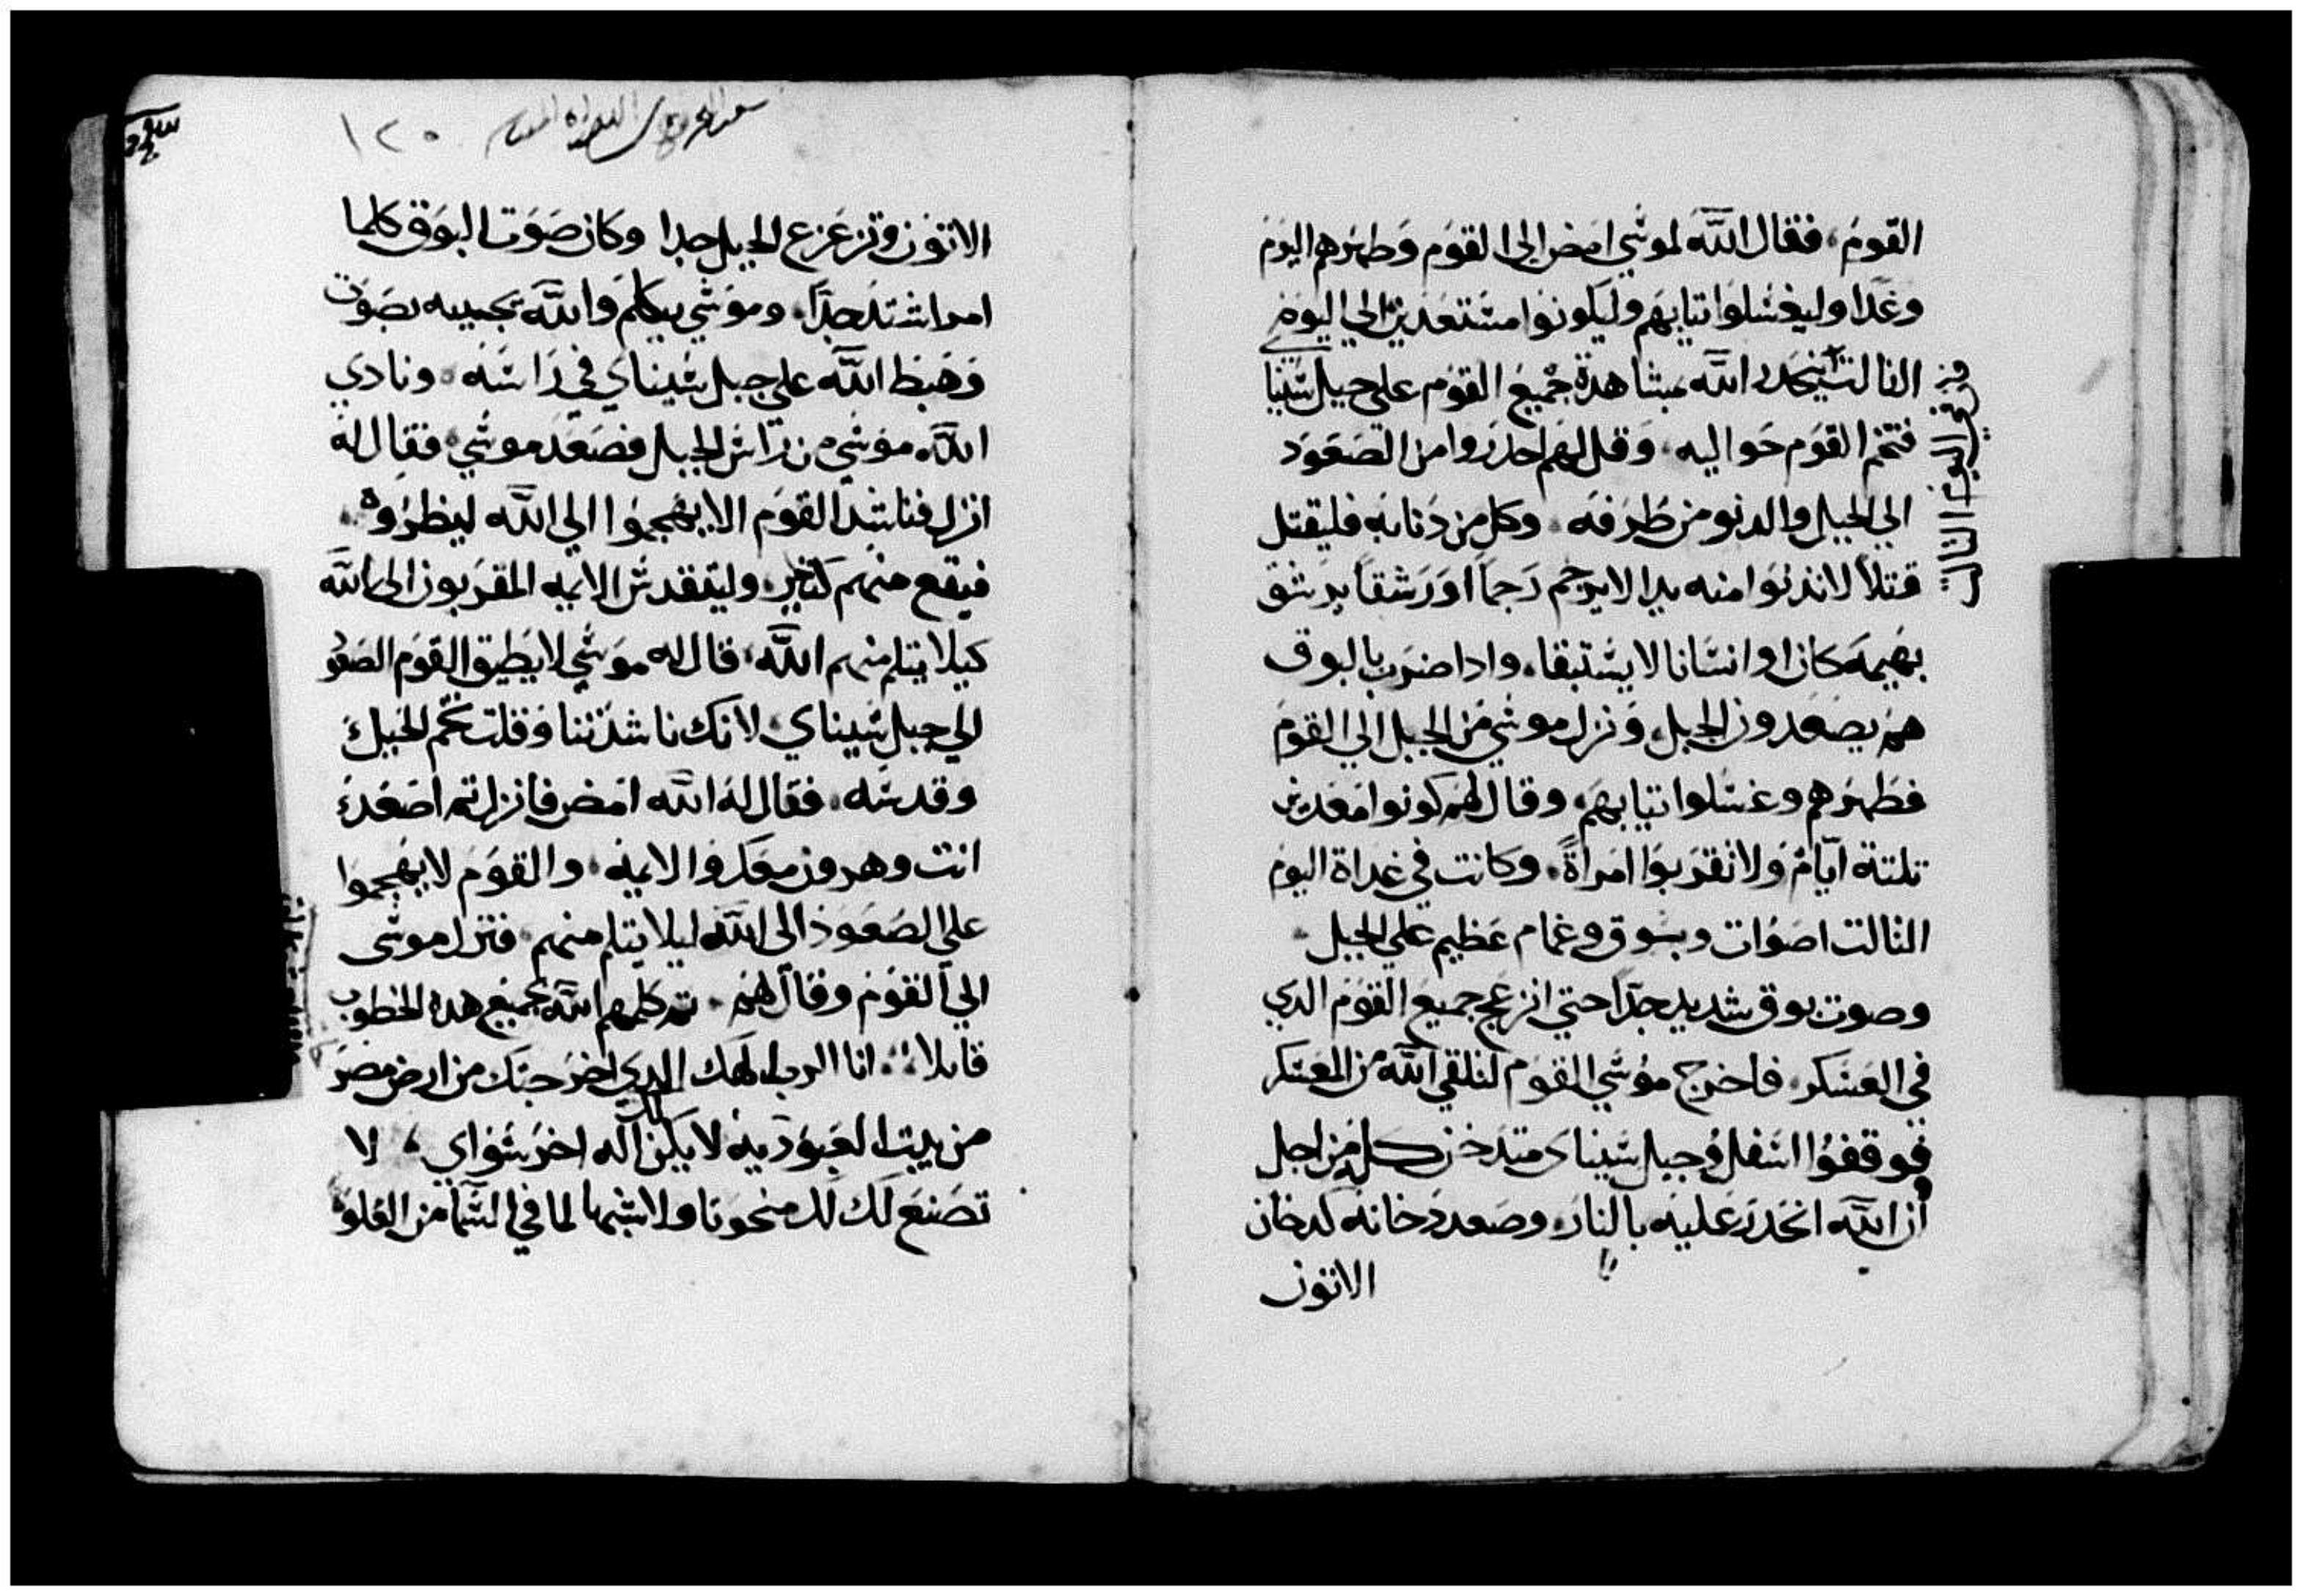 القوم، فقال الله لموسي امض الي القوم وطهرهم اليوم
وغدا وليغسلوا تيابهم وليكونوا مستعدين الي اليوم
التالت ينحدر الله بمشاهدة جميع القوم علي جبل سينا
فتخم القوم حواليه، وقل لهم احدروا من الصعود
الي الجبل والدنو من طرفه، وكل من دنا به فليقتل
قتلاً لا تدنوا منه يد الا يرجم رجماً او رشقاً يرشق
بهيمه كان او انسانا لا يستبقا، وادا ضرب بالبوق
هم يصعدون الجبل، ونزل موسي من الجبل الي القوم
فطهرهم وغسلوا تيابهم، وقال لهم كونوا معدين
تلتة ايام ولا تقربوا امراةً، وكانت في غداة اليوم
التالت اصوات وبروق وغمام عظيم علي الجبل
وصوت بوق شديد جدا حتي انزعج جميع القوم الدي
في العسكر، فاخرج موسي القوم لتلقي الله من المعسكر
فوقفوا اسفل وجبل سيناى متدخن كله من اجل
ان الله انحدر عليه بالنار، وصعد دخانه كدخان
الاتون
في اليوم التالت
١٢٠
الاتون وتزعزع الجبل جدا وكان صوت البوق كلما
امرا شتد جدا، وموسي يتكلم والله يجيبه بصوت
وهبط الله علي جبل سيناي في راسه، ونادي
الله موسي من راس الجبل فصعد موسي، فقال له
انزل فناشد القوم الا يهجموا الي الله لينظروه
فيقع منهم كثير، وليتقدس الايمه المقربون الي الله
كيلا يتلم منهم الله، قال له موسي لا يطيق القوم الصعو
الي جبل سيناي، لانك ناشدتنا وقلت تخم الجبل
وقدسه، فقال له الله امض فانزل تم اصعد
انت وهرون معك والايمه، والقوم لا يهجموا
علي الصعود الي الله ليلا يتلم منهم، فنزل موسى
الي القوم وقال لهم، تم كلمهم الله بجميع هده الخطوب
قايلا، انا الرب الهك الدي اخرجتك من ارض مصر
من بيت العبودية لا يكن لك اله اخر سواي، لا
تصنع لك منحوتا ولا شبها لما في السما من العلو